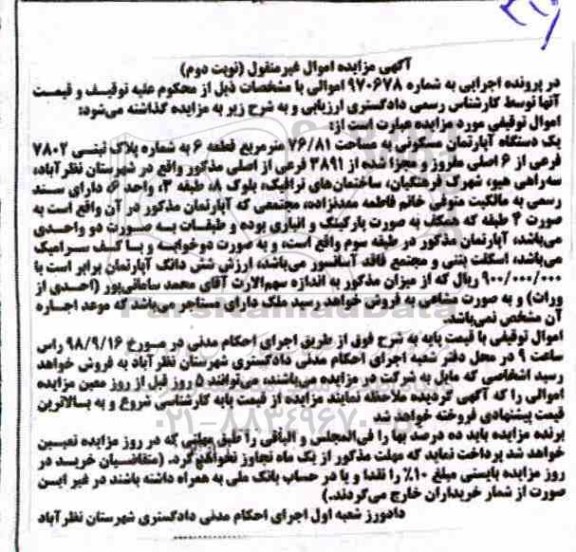 آگهی مزایده اموال غیرمنقول (نوبت دوم)
در پرونده اجرایی به شماره ۹۷۰۶۷۸ اموالی با مشخصات ذیل از محکوم علیه توقیف و قیمت
آنها توسط کارشناس رسمی دادگستری ارزیابی و به شرح زیر به مزایده گذاشته می‌شود:
اموال توقیفی مورد مزایده عبارت است از:
یک دستگاه آپارتمان مسکونی به مساحت ۷۶/۸۱ مترمربع قطعه ۶ به شماره پلاک ثبتی ۷۸۰۲
فرعی از ۶ اصلی مفروز و مجزا شده از ۳۸۹۱ فرعی از اصلی مذکور واقع در شهرستان نظرآباد،
سه‌راهی هیو، شهرک فرهنگیان، ساختمان‌های ترافیک، بلوک ۸، طبقه ۳، واحد ۶، دارای سند
رسمی به مالکیت متوفی خانم فاطمه معدنزاده، مجتمعی که آپارتمان مذکور در آن واقع است به
صورت ۴ طبقه که همکف به صورت پارکینگ و انباری بوده و طبقات به صورت دو واحدی
می‌باشد، آپارتمان مذکور در طبقه سوم واقع است، و به صورت دوخوابه و با کف سرامیک
می‌باشد، اسکلت بتنی و مجتمع فاقد آسانسور می‌باشد، ارزش شش دانگ آپارتمان برابر است با
۹۰۰/۰۰۰/۰۰۰ ریال که از میزان مذکور به اندازه سهم‌الارث آقای محمد سامانی‌پور (احدی از
وراث) و به صورت مشاعی به فروش خواهد رسید ملک دارای مستاجر می‌باشد که موعد اجاره
آن مشخص نمی‌باشد.
اموال توقیفی با قیمت پایه به شرح فوق از طریق اجرای احکام مدنی در مورخ ۹۸/۹/۱۶ راس
ساعت ۹ در محل دفتر شعبه اجرای احکام مدنی دادگستری شهرستان نظرآباد به فروش خواهد
رسید اشخاصی که مایل به شرکت در مزایده می‌باشند، می‌توانند ۵ روز قبل از روز معین مزایده
اموالی را که آگهی گردیده ملاحظه نمایند مزایده از قیمت پایه کارشناسی شروع و به بالاترین
قیمت پیشنهادی فروخته خواهد شد
برنده مزایده باید ده درصد بها را فی‌المجلس و الباقی را طبق مهلتی که در روز مزایده تعیین
خواهد شد پرداخت نماید که مهلت مذکور از یک ماه تجاوز نخواهد کرد. (متقاضیان خرید در
روز مزایده بایستی مبلغ ۱۰٪ را نقدا و یا در حساب بانک ملی به همراه داشته باشند در غیر این
صورت از شمار خریداران خارج می‌گردند.)
دادورز شعبه اول اجرای احکام مدنی دادگستری شهرستان نظرآباد
ParsNamadData
۰۲۱-۸۸۳۴۹۶۷۰-۵